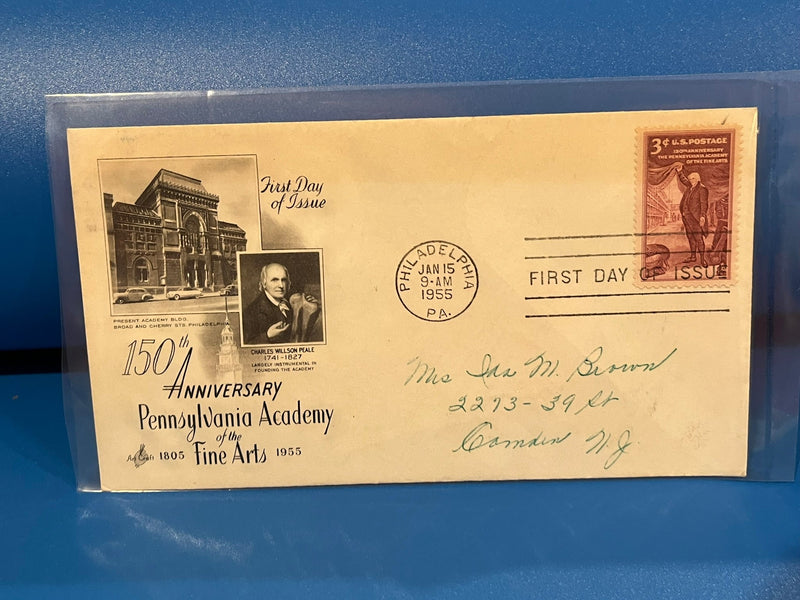 First Day
of Issue
PRESENT ACADEMY BLDG.
BROAD AND CHERRY STS. PHILADELPHIA
CHARLES WILLSON PEALE
1741-1827
LARGELY INSTRUMENTAL IN
FOUNDING THE ACADEMY
150th
ANNIVERSARY
Pennsylvania Academy
of the
Fine Arts
1805 1955
Art Craft
PHILADELPHIA
JAN 15
9-AM
1955
PA.
3¢ U.S. POSTAGE
150TH ANNIVERSARY
THE PENNSYLVANIA ACADEMY
OF THE FINE ARTS
FIRST DAY OF ISSUE
Mrs Ida M. Brown
2273-39 St
Camden N.J.